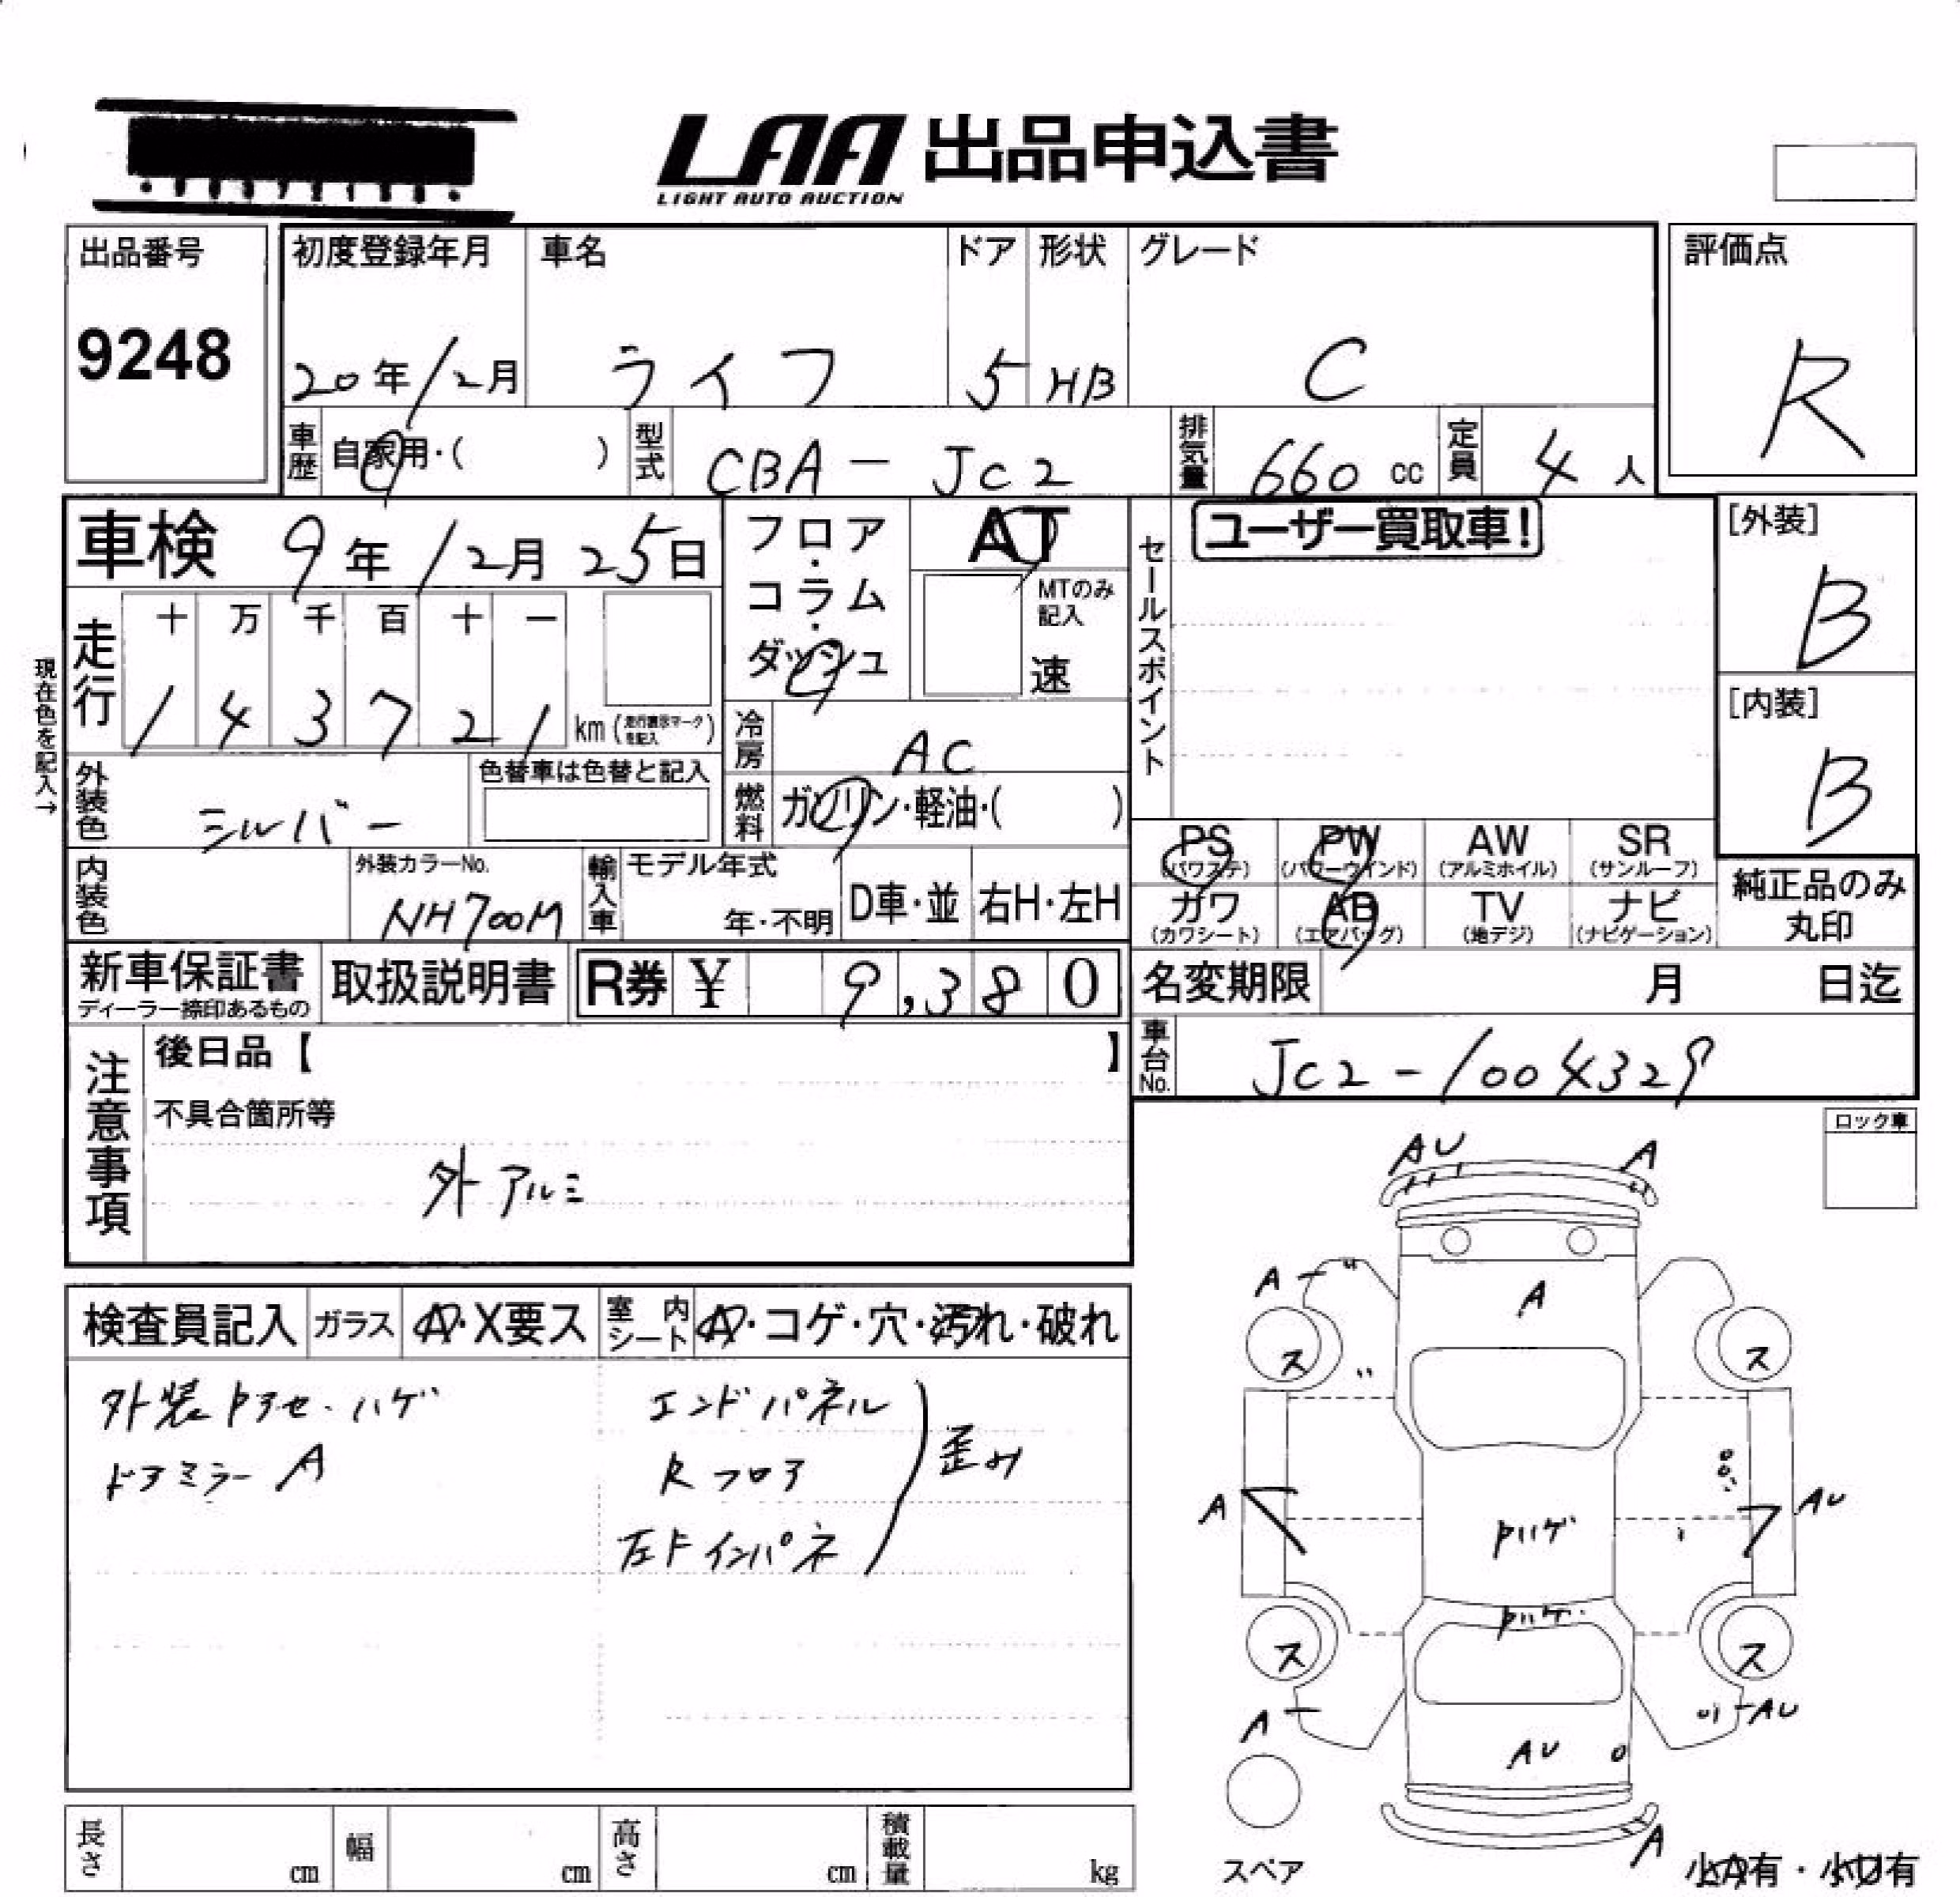 LAA 出品申込書
LIGHT AUTO AUCTION
出品番号
9248
初度登録年月
20年12月
車名
ライフ
ドア
5
形状
HB
グレード
C
評価点
R
車歴 自家用・( )
型式 CBA-JC2
排気量 660 cc
定員 4 人
車検 9年12月25日
フロア・コラム・ダッシュ
AT
MTのみ記入
速
セールスポイント
ユーザー買取車!
[外装]
B
[内装]
B
現在色を記入→
走行
十 万 千 百 十 一
1 4 3 7 2 1 km (走行表示マークを記入)
冷房 AC
外装色 シルバー
色替車は色替と記入
燃料 ガソリン・軽油・( )
内装色
外装カラーNo.
NH700M
輸入車
モデル年式
年・不明
D車・並
右H・左H
PS (パワステ)
PW (パワーウインド)
AW (アルミホイル)
SR (サンルーフ)
カワ (カワシート)
AB (エアバッグ)
TV (地デジ)
ナビ (ナビゲーション)
純正品のみ丸印
新車保証書
ディーラー捺印あるもの
取扱説明書
R券 ¥ 9,380
名変期限 月 日迄
車台No. JC2-1004329
注意事項
後日品【 】
不具合箇所等
外アルミ
ロック車
検査員記入
ガラス A・X要ス
室内シート A・コゲ・穴・汚れ・破れ
外装トアセ・ハゲ
ドアミラーA
エンドパネル
Rフロア
左Fインパネ
歪み
AU A
A A
ス ス
A AU
トハゲ
トハゲ
ス ス
A AU
AU
A
スペア
小A有・小U有
長さ cm
幅 cm
高さ cm
積載量 kg